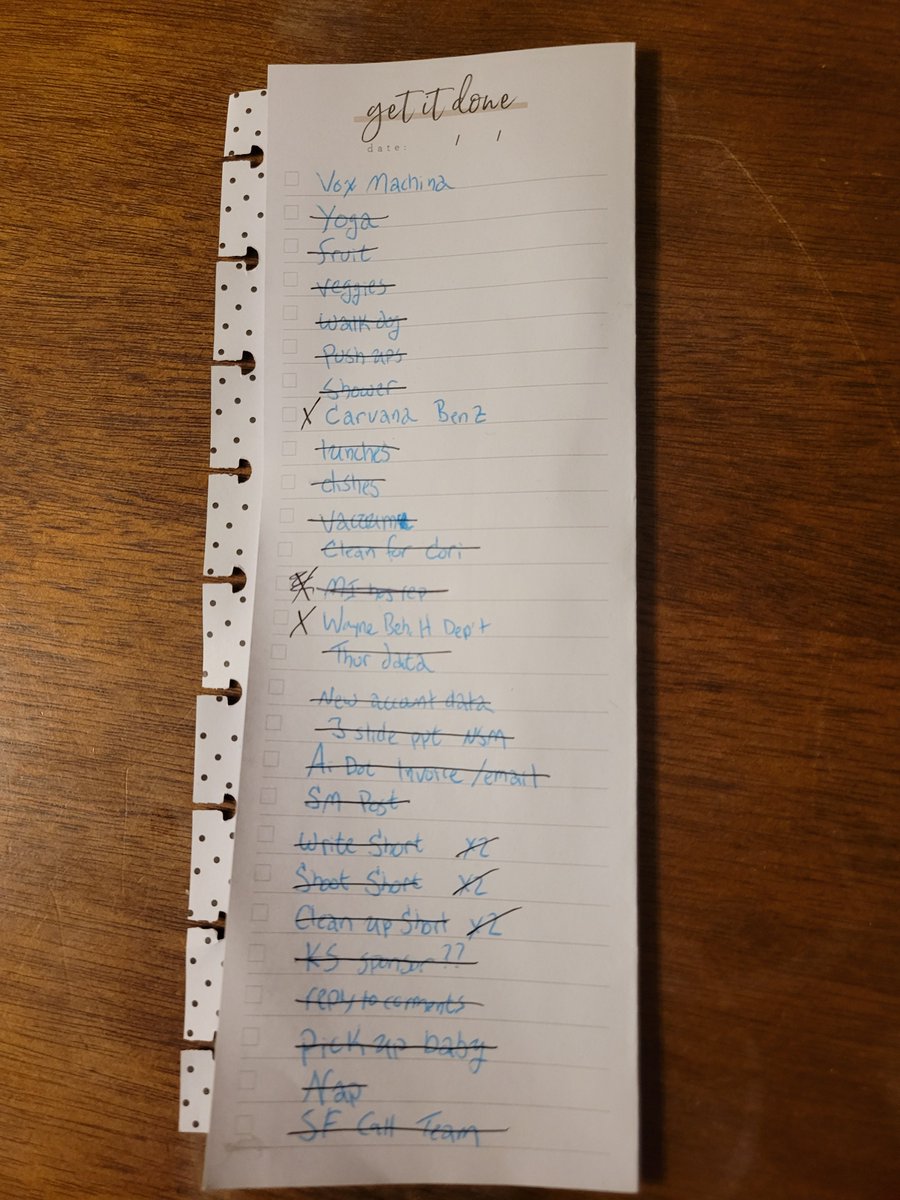 get it done
date: / /
Vox Machina
Yoga
fruit
veggies
walk dog
Push ups
Shower
X Carvana Benz
lunches
dishes
Vacuum
Clean for Cori
MI hos rep
X Wayne Beh. H Dep't
Thur data
New account data
3 slide ppt NSM
A. Doc Invoice/email
SM Post
Write Short x2
Shoot Short x2
Clean up Short x2
KS sponsor??
reply to comments
pick up baby
Nap
SF Call Team